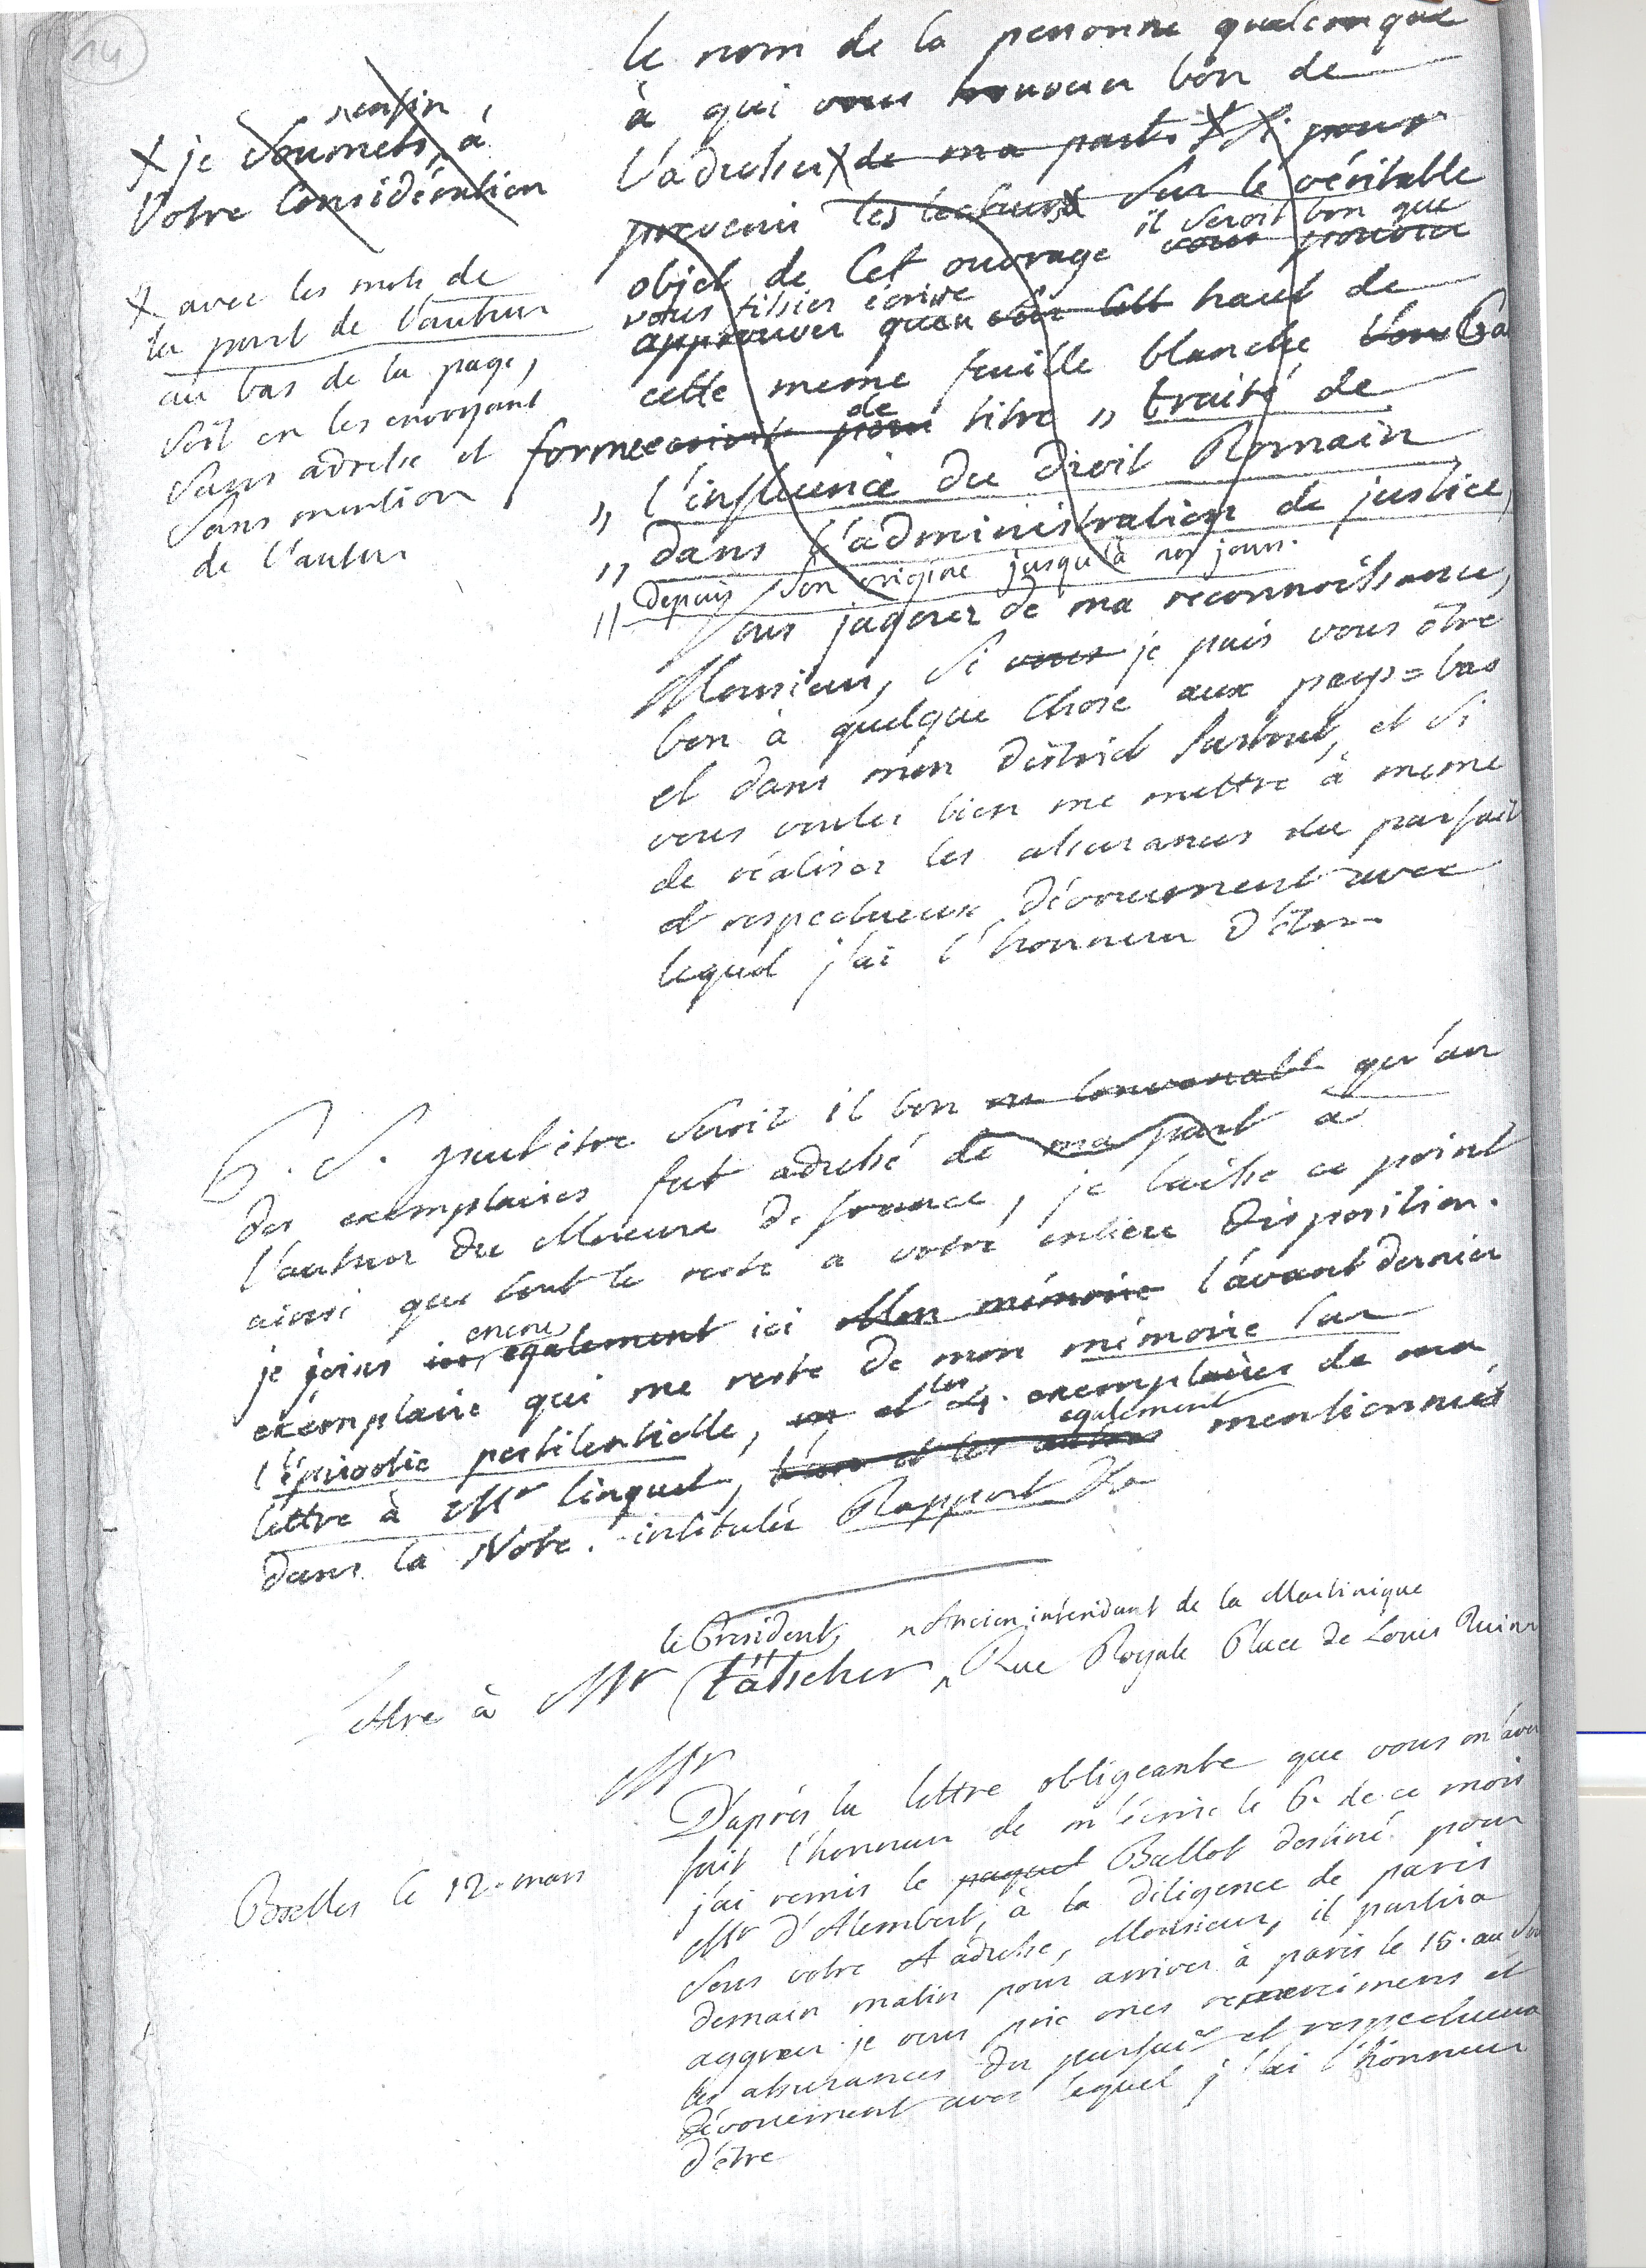 14
le nom de la personne quelconque
à qui vous trouverez bon de
l'adresser X de ma part X X pour
prevenir les lecteurs sur le véritable
il seroit bon que
objet de cet ouvrage vous pouvez
vous fissiez écrire
approuver qu'en haut de
cette meme feuille blanche
forme de titre " traité de
" l'influence du droit Romain
" dans l'administration de justice,
" depuis son origine jusqu'à nos jours.
Vous jugerez de ma reconnoissance,
Monsieur, si vous je puis vous être
bon à quelque chose aux pays=bas
et dans mon district surtout, et si
vous voulez bien me mettre à meme
de réaliser les assurances du parfait
et respectueux dévouement avec
lequel j'ai l'honneur d'être
enfin
X je soumets, à
Votre Considération
X avec les mots de
la part de l'auteur
au bas de la page,
soit en les envoyant
sans adresse et
sans mention
de l'auteur
P. S. peut être seroit il bon ou convenable qu'un
des exemplaires fut adressé de ma part à
l'auteur du Mercure de france, je laisse ce point
ainsi que tout le reste a votre entiere Disposition.
encore
je joins ici également ici Mon mémoire l'avant dernier
exemplaire qui me reste de mon mémoire sur
l'épizootie pestilentielle, et les 4. exemplaires de ma
également
lettre à Mr linguet, l'un et les autres mentionnés
dans la Note. intitulée Rapport &a
le President, Ancien intendant de la Martinique
Lettre à Mr tätscher, Rue Royale Place de Louis Quinze
Mr
D'après la lettre obligeante que vous m'avez
fait l'honneur de m'écrire le 6. de ce mois
Bxelles le 12. mars
j'ai remis le paquet Ballot destiné pour
Mr d'Alembert, à la diligence de paris
sous votre adresse, Monsieur, il partira
demain matin pour arriver à paris le 15. au soir
aggréez je vous prie mes remercimens et
les assurances du parfait et respectueux
dévouement avec lequel j'ai l'honneur
d'être